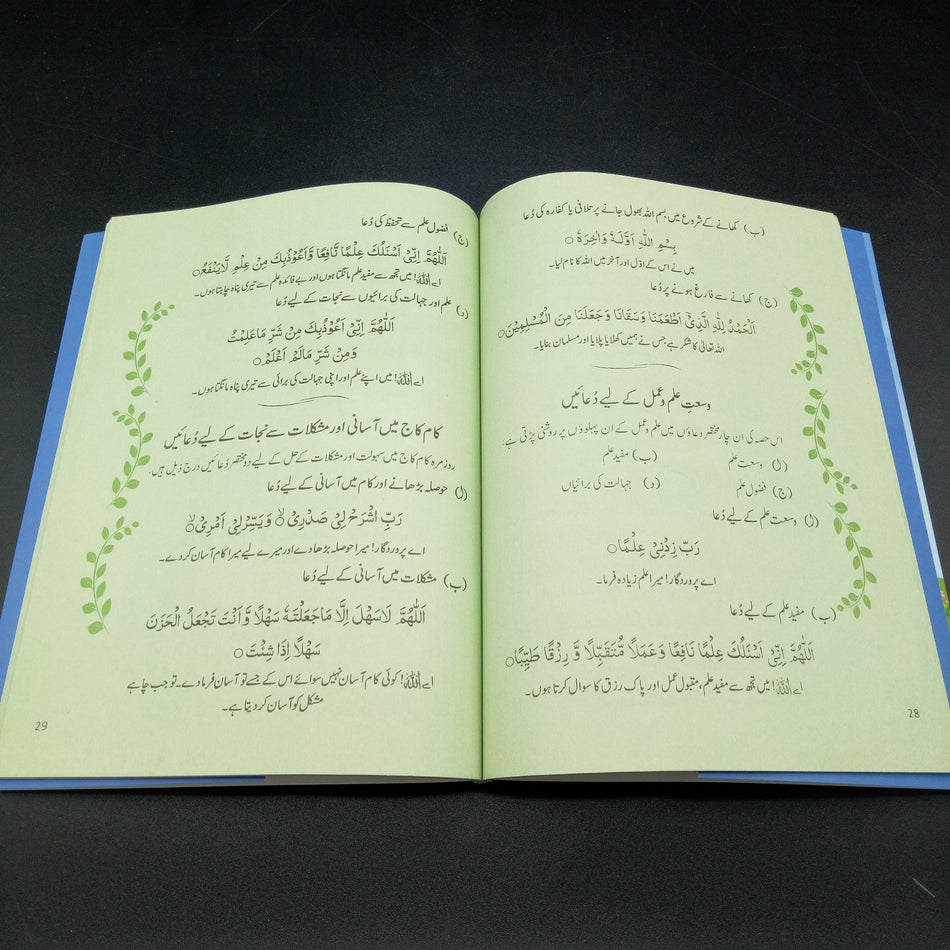 (ب) کھانے کے شروع میں بسم اللہ بھول جانے پر تلافی یا کفارہ کی دُعا
بِسْمِ اللّٰهِ اَوَّلَهٗ وَاٰخِرَهٗ ○
میں نے اس کے اوّل اور آخر میں اللہ کا نام لیا۔
(ج) کھانے سے فارغ ہونے پر دُعا
اَلْحَمْدُ لِلّٰهِ الَّذِیْۤ اَطْعَمَنَا وَسَقَانَا وَجَعَلَنَا مِنَ الْمُسْلِمِیْنَ○
اللہ تعالیٰ کا شکر ہے جس نے ہمیں کھلایا پلایا اور مسلمان بنایا۔
وسعتِ علم و عمل کے لیے دُعائیں
اس حصہ کی ان چار مختصر دعاؤں میں علم و عمل کے ان پہلوؤں پر روشنی پڑتی ہے:
(ا) وسعت علم (ب) مفید علم
(ج) فضول علم (د) جہالت کی برائیاں
(ا) وسعت علم کے لیے دُعا
رَبِّ زِدْنِیْ عِلْمًا○
اے پروردگار! میرا علم زیادہ فرما۔
(ب) مفید علم کے لیے دُعا
اَللّٰهُمَّ اِنِّیْۤ اَسْئَلُكَ عِلْمًا نَافِعًا وَعَمَلًا مُّتَقَبَّلًا وَّ رِزْقًا طَیِّبًا○
اے اللہ! میں تجھ سے مفید علم، مقبول عمل اور پاک رزق کا سوال کرتا ہوں۔
28
(ج) فضول علم سے تحفظ کی دُعا
اَللّٰهُمَّ اِنِّیْۤ اَسْئَلُكَ عِلْمًا نَّافِعًا وَّاَعُوْذُبِكَ مِنْ عِلْمٍ لَّایَنْفَعُ○
اے اللہ! میں تجھ سے مفید علم مانگتا ہوں اور بے فائدہ علم سے تیری پناہ چاہتا ہوں۔
(د) علم اور جہالت کی برائیوں سے نجات کے لیے دُعا
اَللّٰهُمَّ اِنِّیْۤ اَعُوْذُبِكَ مِنْ شَرِّ مَاعَلِمْتُ
وَمِنْ شَرِّ مَالَمْ اَعْلَمْ○
اے اللہ! میں اپنے علم اور اپنی جہالت کی برائی سے تیری پناہ مانگتا ہوں۔
کام کاج میں آسانی اور مشکلات سے نجات کے لیے دُعائیں
روزمرہ کام کاج میں سہولت اور مشکلات کے حل کے لیے دو مختصر دُعائیں درج ذیل ہیں:
(ا) حوصلہ بڑھانے اور کام میں آسانی کے لیے دُعا
رَبِّ اشْرَحْ لِیْ صَدْرِیْ○ وَیَسِّرْلِیْۤ اَمْرِیْ○
اے پروردگار! میرا حوصلہ بڑھا دے اور میرے لیے میرا کام آسان کردے۔
(ب) مشکلات میں آسانی کے لیے دُعا
اَللّٰهُمَّ لَاسَهْلَ اِلَّا مَاجَعَلْتَهٗ سَهْلًا وَّاَنْتَ تَجْعَلُ الْحَزَنَ
سَهْلًا اِذَا شِئْتَ ○
اے اللہ! کوئی کام آسان نہیں سوائے اس کے جسے تو آسان فرما دے۔ تو جب چاہے
مشکل کو آسان کر دیتا ہے۔
29